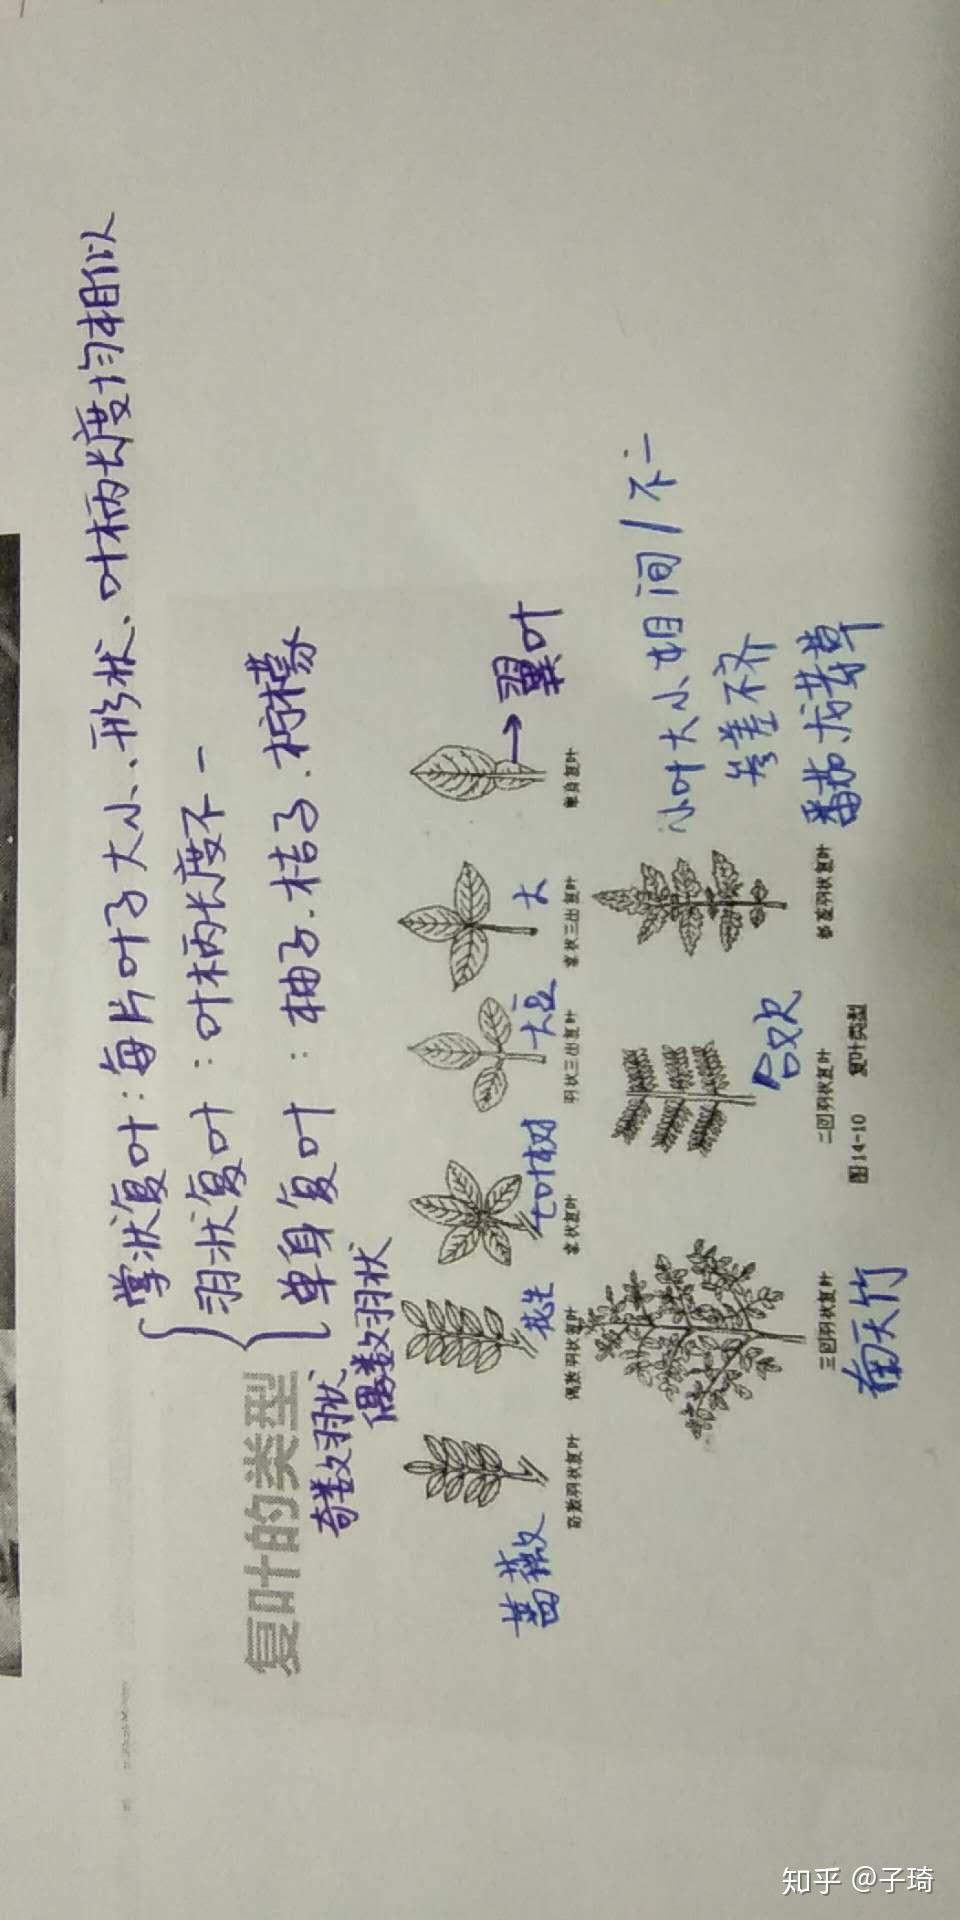 掌状复叶：每片叶子大小、形状、叶柄长度均相似
羽状复叶：叶柄长度不一
单身复叶：柚子.桔子.柠檬
复叶的类型
奇数羽状
偶数羽状
蔷薇
花生
七叶树
大豆
大
→翼叶
奇数羽状复叶
偶数羽状复叶
掌状复叶
羽状三出复叶
掌状三出复叶
单身复叶
小叶大小相间/不一
参差不齐
番茄、龙芽草
南天竹
合欢
三回羽状复叶
二回羽状复叶
参差羽状复叶
图 14-10 复叶类型
知乎 @子琦